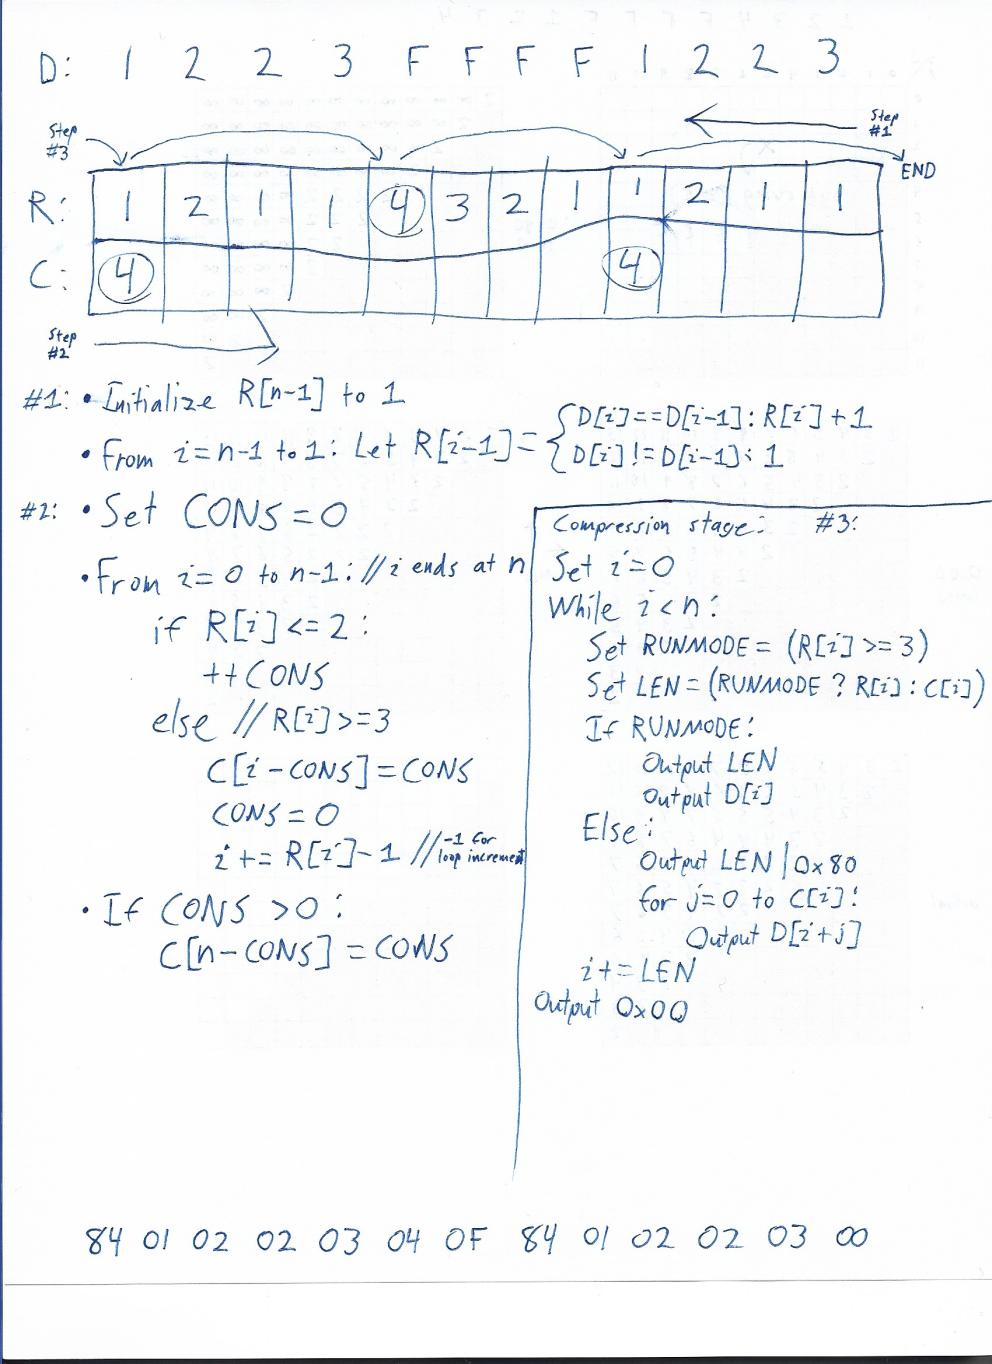 D: 1 2 2 3 F F F F 1 2 2 3
Step #3
Step #1
END
R: 1 2 1 1 4 3 2 1 1 2 1 1
C: 4 4
Step #2
#1: • Initialize R[n-1] to 1
• From i=n-1 to 1: Let R[i-1]= { D[i]==D[i-1]: R[i]+1
D[i]!=D[i-1]: 1
#2: • Set CONS=0
• From i=0 to n-1: //i ends at n
if R[i]<=2:
++CONS
else //R[i]>=3
C[i-CONS]=CONS
CONS=0
i+=R[i]-1 //-1 for loop increment
• If CONS>0:
C[n-CONS]=CONS
Compression stage: #3:
Set i=0
While i<n:
Set RUNMODE=(R[i]>=3)
Set LEN=(RUNMODE ? R[i]:C[i])
If RUNMODE:
Output LEN
Output D[i]
Else:
Output LEN|0x80
for j=0 to C[i]:
Output D[i+j]
i+=LEN
Output 0x00
84 01 02 02 03 04 0F 84 01 02 02 03 00